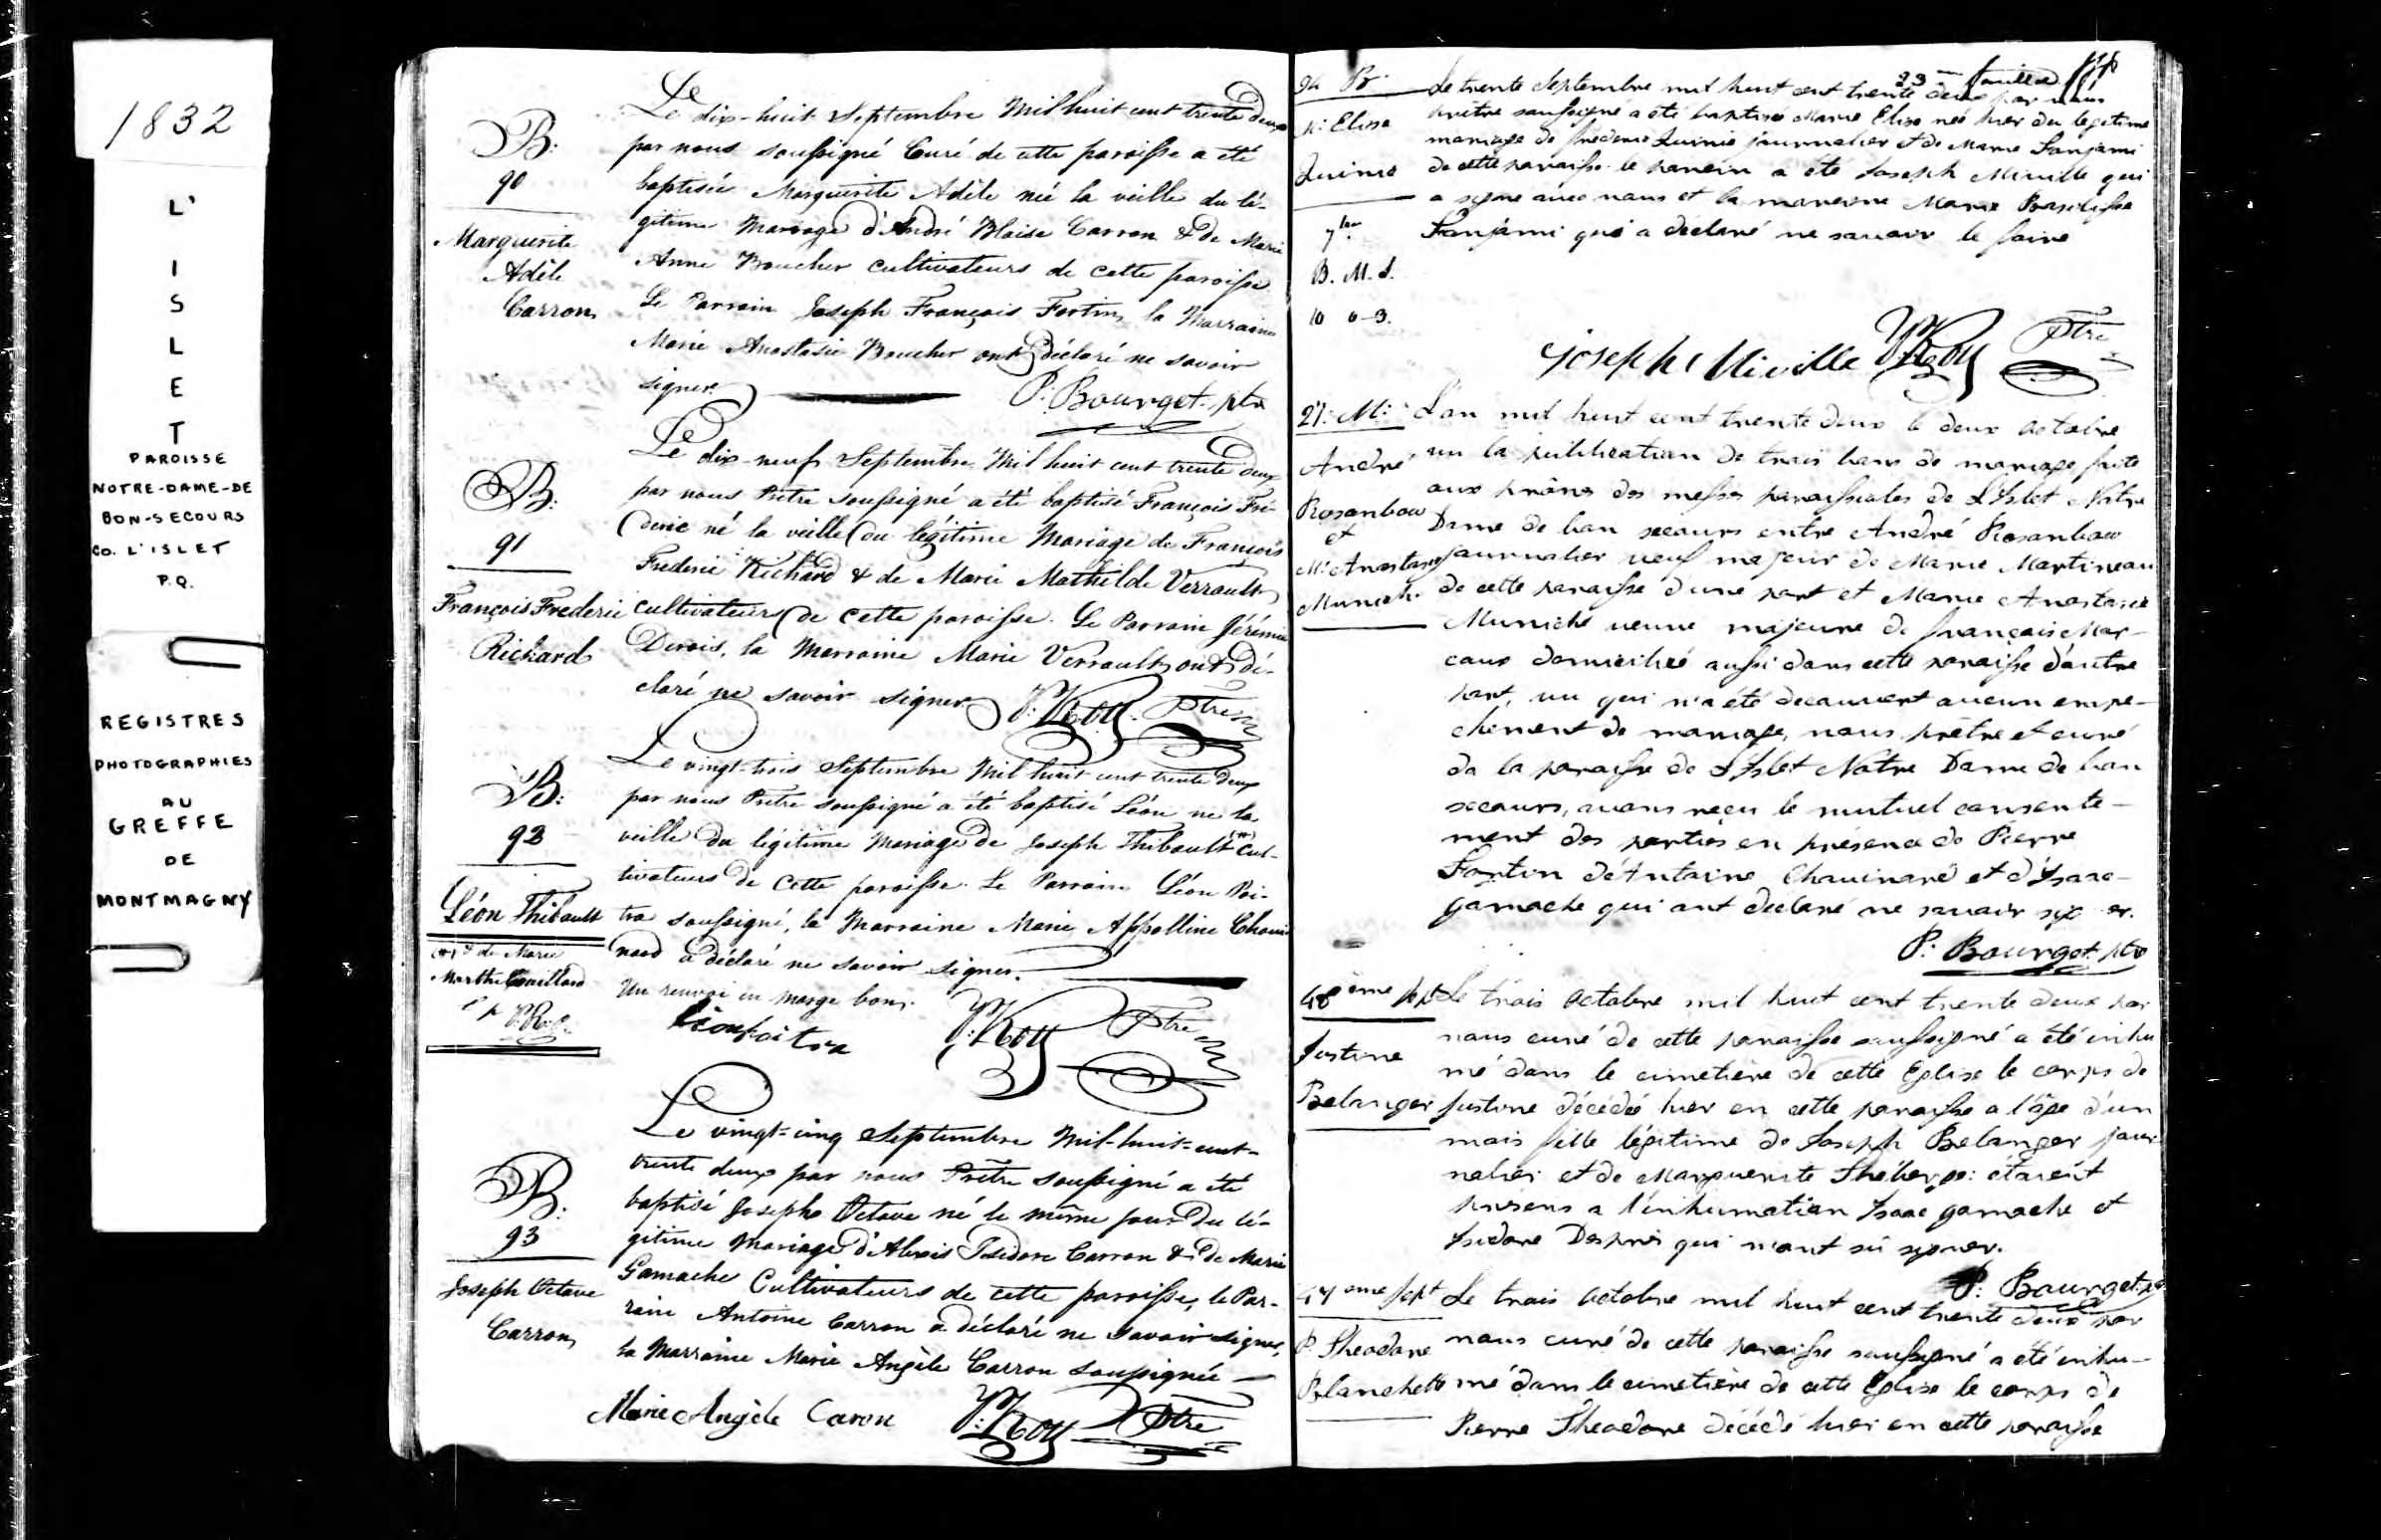 1832
L'
I
S
L
E
T
PAROISSE
NOTRE-DAME-DE
BON-SECOURS
CO. L'ISLET
P.Q.
REGISTRES
PHOTOGRAPHIES
AU
GREFFE
DE
MONTMAGNY
B:
90
Marguerite
Adèle
Carron
Le dix-huit Septembre Mil huit cent trente deux
par nous soussigné Curé de cette paroisse a été
baptisée Marguerite Adèle née la veille du lé-
gitime Mariage d'André Blaise Carron & de Marie
Anne Boucher cultivateurs de cette paroisse
Le Parrain Joseph François Fortin, la Marraine
Marie Anastasie Boucher ont déclaré ne savoir
signer.
P. Bourget ptre
B:
91
François Frederic
Richard
Le dix-neuf Septembre Mil huit cent trente deux
par nous Prêtre soussigné a été baptisé François Fré-
deric né la veille du légitime Mariage de François
Frederic Richard & de Marie Mathilde Verrault
cultivateurs de cette paroisse. Le Parrain Jérémie
la Marraine Marie Verrault ont dé-
claré ne savoir signer
P: Roy Ptre
B:
92
Léon Thibault
(*) & de Marie
Marthe Couillard
Le vingt-trois Septembre Mil huit cent trente deux
par nous Prêtre soussigné a été baptisé Léon né la
veille du légitime Mariage de Joseph Thibault (*) cul-
tivateurs de cette paroisse. Le Parrain Léon Poi-
tra soussigné, la Marraine Marie Appolline Choui
nard a déclaré ne savoir signer.
Un renvoi en marge bon.
Léon Poitra
P: Roy Ptre
B:
93
Joseph Octave
Carron
Le vingt-cinq Septembre Mil-huit-cent-
trente deux par nous Prêtre soussigné a été
baptisé Joseph Octave né le même jour du lé-
gitime Mariage d'Alexis Isidore Carron & de Marie
Gamache Cultivateurs de cette paroisse, le Par-
rain Antoine Carron a déclaré ne savoir signer,
la Marraine Marie Angèle Carron soussignée
Marie Angèle Caron
P: Roy Ptre
23me feuillet
94 B.
M: Elise
7bre
B. M. S.
10 0-3.
Le trente Septembre mil huit cent trente deux par nous
prêtre soussigné a été baptisé Marie Elise née hier du legitime
mariage de frederic journalier et de Marie
de cette paroisse le parrain a été Joseph Miville qui
a signé avec nous et la marraine Marie
qui a déclaré ne savoir le faire
Joseph Miville P: Roy Ptre
27: M:
André
Rosanbow
et
M: Anastasie
Muniche
L'an mil huit cent trente deux le deux octobre
vu la publication de trois bans de mariage faite
aux prônes des messes paroissiales de L'Islet Notre
Dame de bon secours entre André Rosanbow
journalier veuf majeur de Marie Martineau
de cette paroisse d'une part et Marie Anastasie
Muniche veuve majeure de françois Mar-
caux domiciliée aussi dans cette paroisse d'autre
part, vu qui n'a été decouvert aucun empe-
chement de mariage, nous prêtre et curé
de la paroisse de L'Islet Notre Dame de bon
secours, avons reçu le mutuel consente-
ment des parties en présence de Pierre
Fortin d'Antoine Chouinard et d'Isaac
gamache qui ont declaré ne savoir signer.
P: Bourget ptre
48ème sept
Justine
Belanger
Le trois octobre mil huit cent trente deux par
nous curé de cette paroisse soussigné a été inhu
mé dans le cimetière de cette Eglise le corps de
Justine décédée hier en cette paroisse a l'âge d'un
mois fille légitime de Joseph Belanger jour-
nalier et de Marguerite Theberge: étaient
présens a l'inhumation Isaac gamache et
Isidore Després qui n'ont sû signer.
P: Bourget ptre
sept
P. Theodore
Blanchette
Le trois octobre mil huit cent trente deux par
nous curé de cette paroisse soussigné a été inhu-
mé dans le cimetière de cette Eglise le corps de
Pierre Theodore décédé hier en cette paroisse